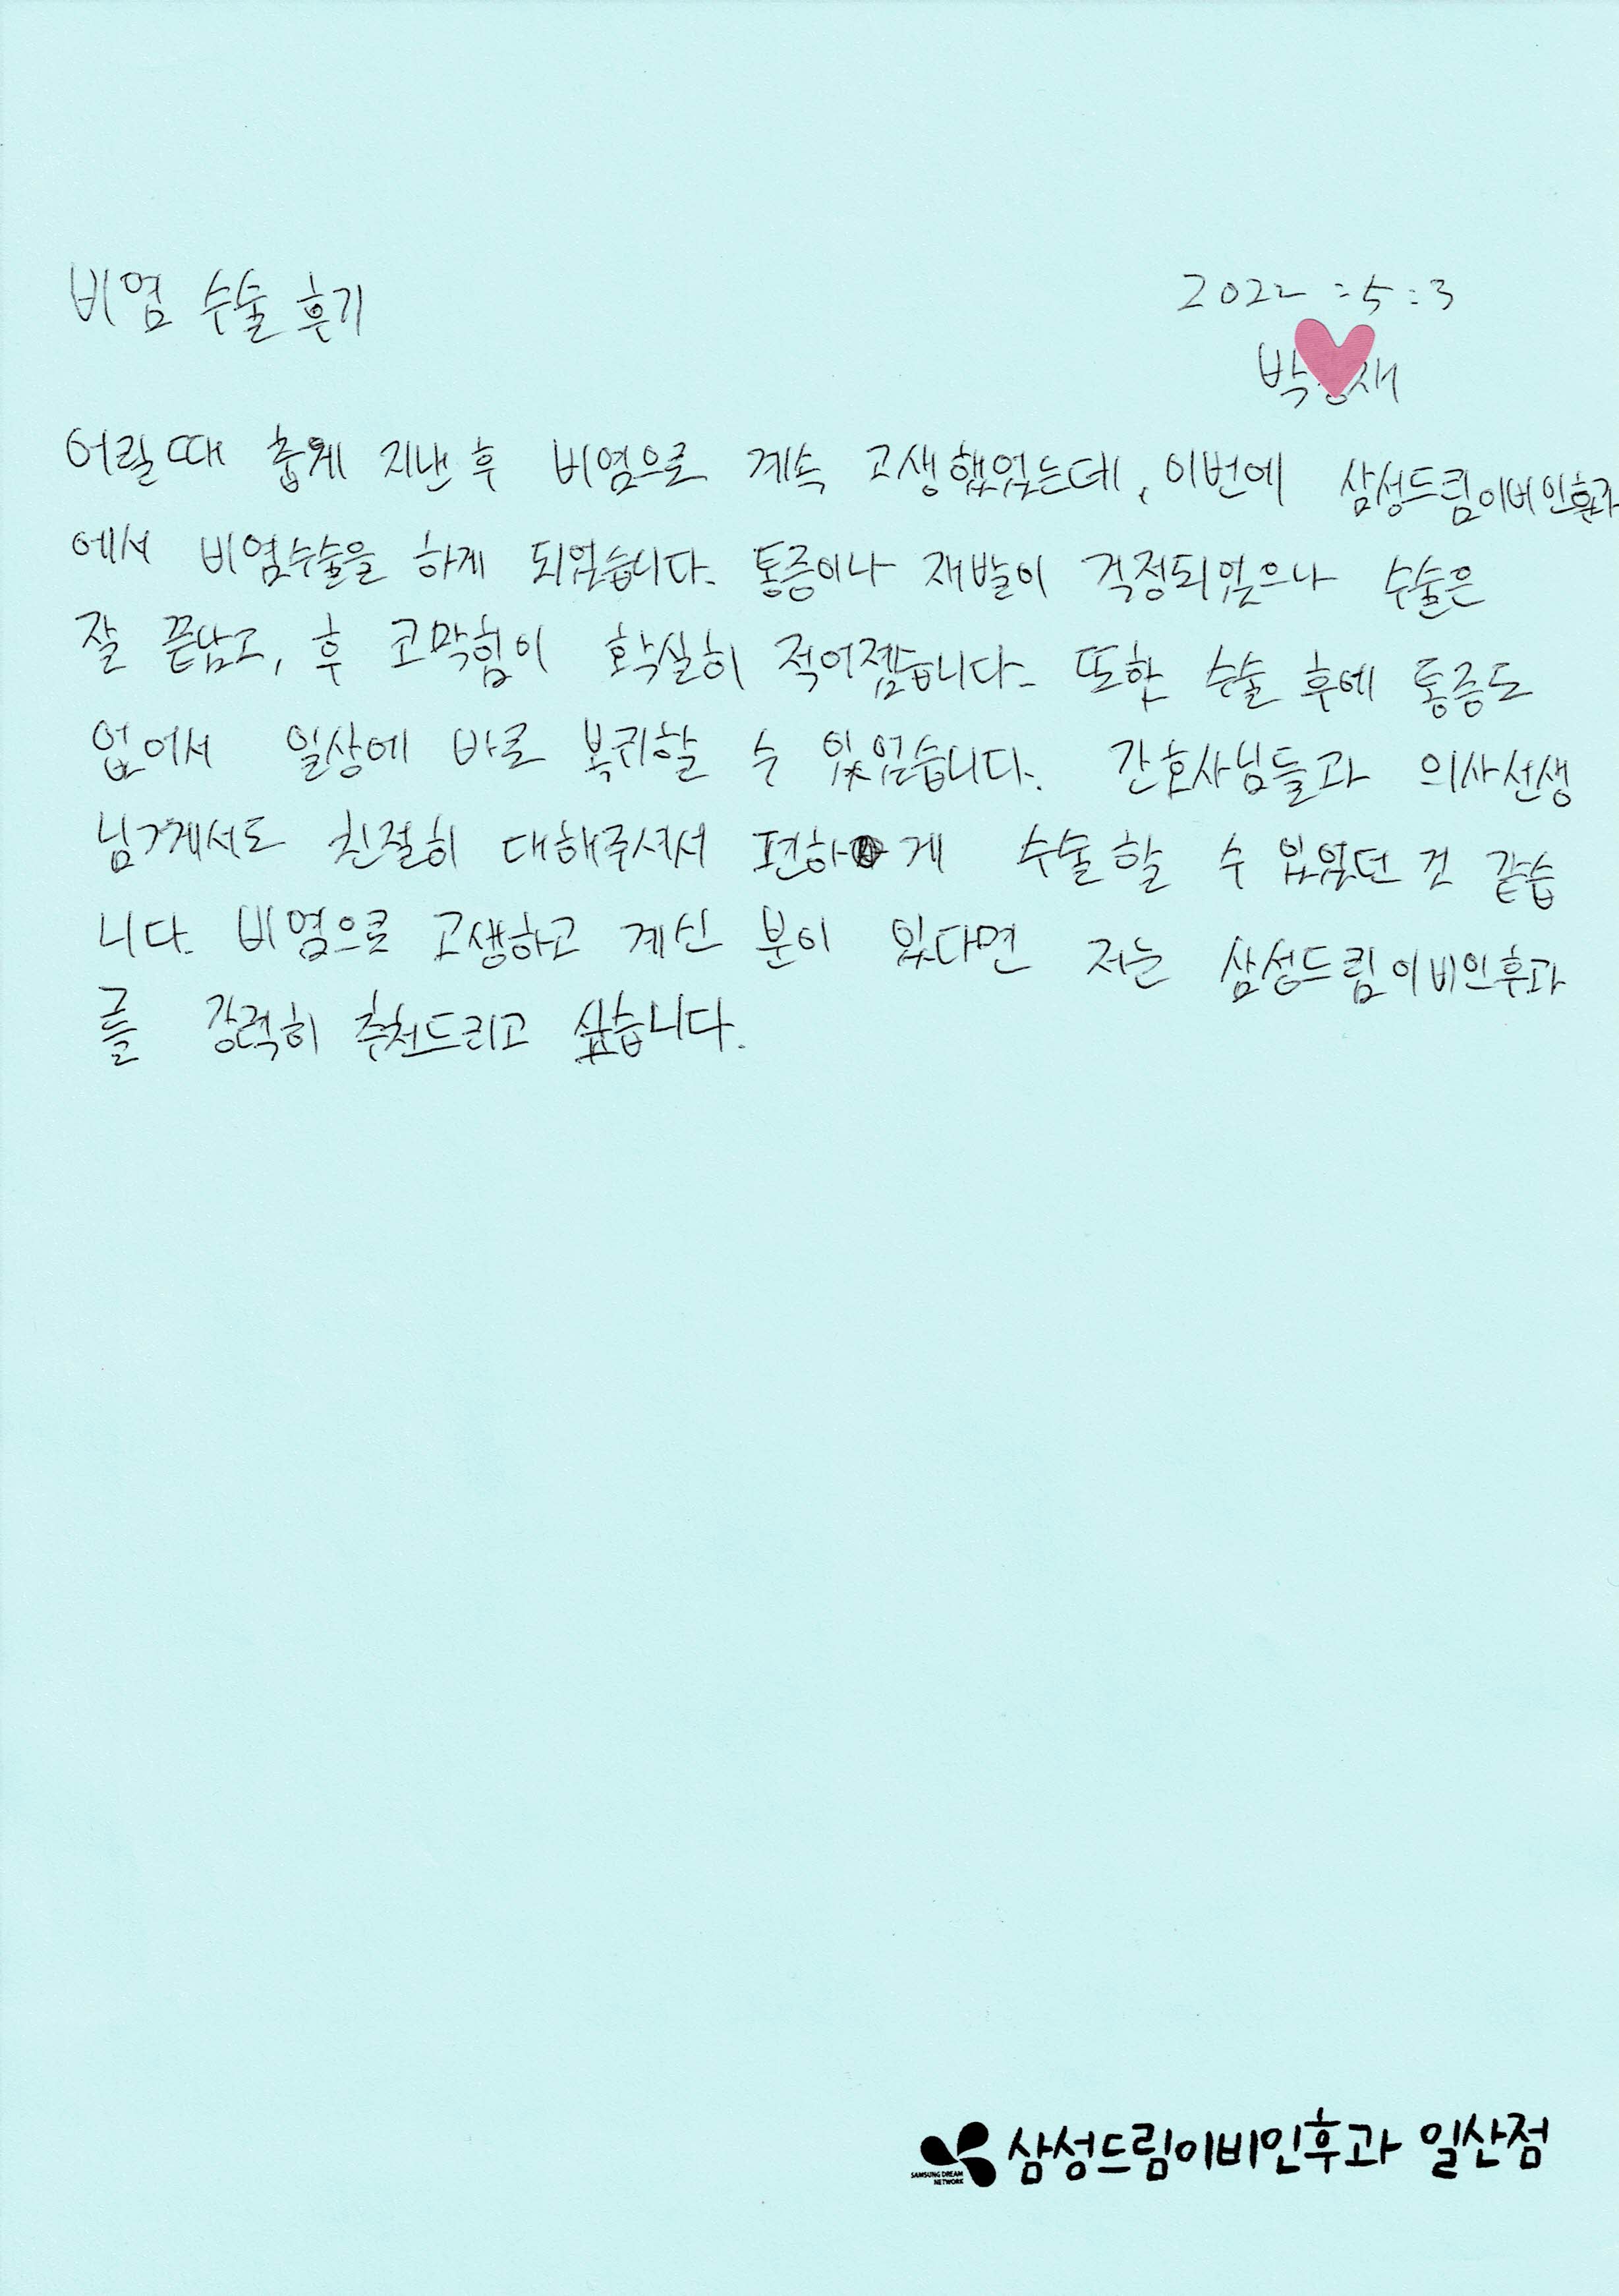 비염 수술 후기
2022 : 5 : 3
박 재
어릴 때 춥게 지낸 후 비염으로 계속 고생했었는데, 이번에 삼성드림이비인후과
에서 비염수술을 하게 되었습니다. 통증이나 재발이 걱정되었으나 수술은
잘 끝났고, 후 코막힘이 확실히 적어졌습니다. 또한 수술 후에 통증도
없어서 일상에 바로 복귀할 수 있었습니다. 간호사님들과 의사선생
님께서도 친절히 대해주셔서 편하게 수술할 수 있었던 것 같습
니다. 비염으로 고생하고 계신 분이 있다면 저는 삼성드림이비인후과
를 강력히 추천드리고 싶습니다.
SAMSUNG DREAM
NETWORK
삼성드림이비인후과 일산점